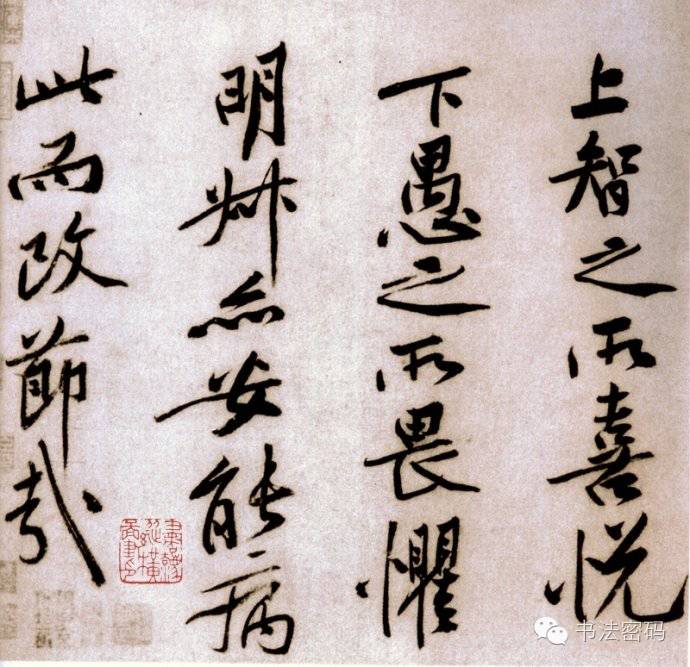 上智之所喜悅
下愚之所畏懼
明叔亦安能病
此而改節哉
书法密码